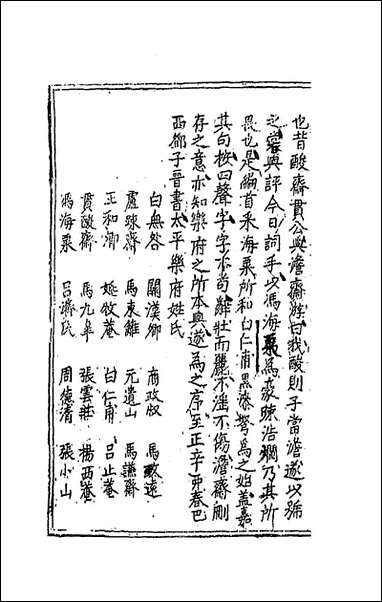 也昔酸齋貫公與澹齋游曰我酸則子當澹遂以號
之當與評今日詞手以馮海粟為豪辣浩爛乃其所
畏也是編首采海粟所和白仁甫黑漆弩為之始蓋嘉
其句按四聲字字不苟辭壯而麗不滛不傷澹齋刪
存之意亦知樂府之所本與遂為之序至正辛卯春巴
西鄧子晋書太平樂府姓氏
白無咎 關漢卿 商政叔 馬致遠
盧踈齋 馬東籬 元遺山 馬謙齋
王和卿 姚牧菴 白仁甫 呂止菴
貫酸齋 馬九皋 張雲莊 楊西菴
馮海粟 呂濟民 周德清 張小山